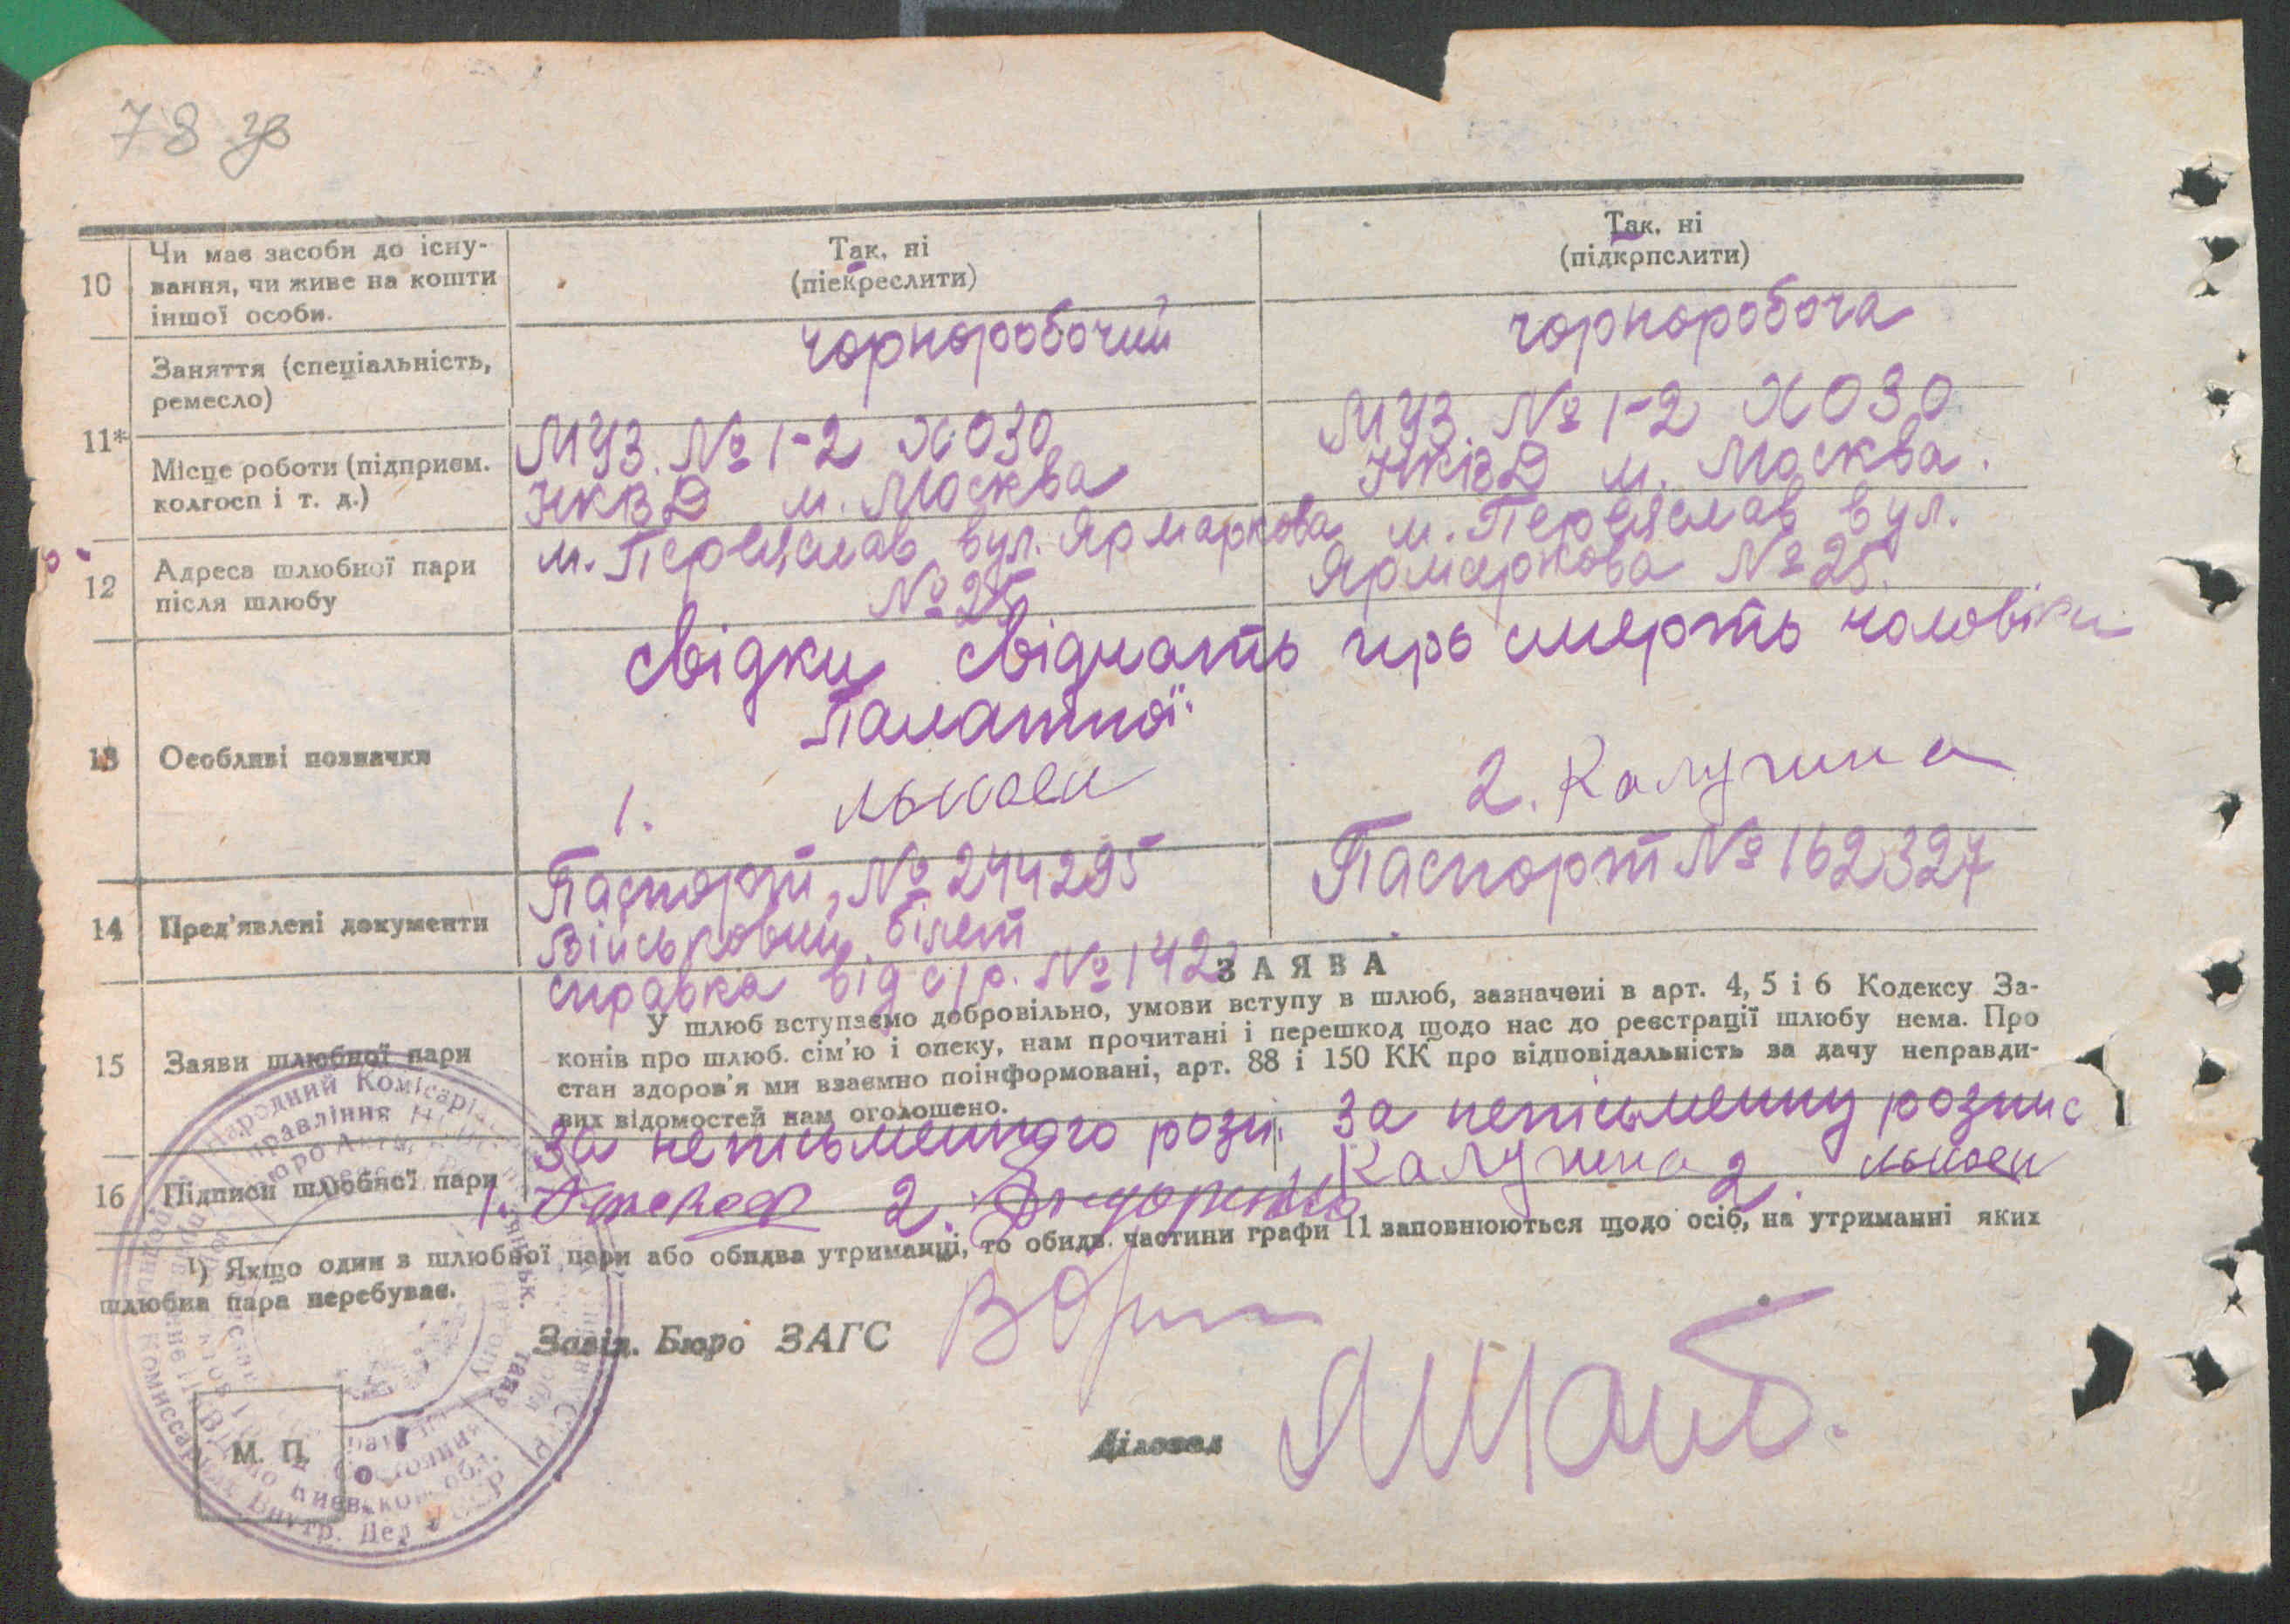 78 зв
Так, ні
(піекреслити)
Так, ні
(підкрпслити)
10
Чи має засоби до існу-
вання, чи живе на кошти
іншої особи.
11*
Заняття (спеціальність,
ремесло)
чорноробочий
чорноробоча
Місце роботи (підприєм.
колгосп і т. д.)
МУЗ. № 1-2 ХОЗО
НКВД м. Москва
МУЗ. № 1-2 ХОЗО
НКВД м. Москва.
12
Адреса шлюбної пари
після шлюбу
м. Переяслав вул. Ярмаркова
№ 25
м. Переяслав вул.
Ярмаркова № 25.
13
Особливі позначки
свідки свідчать про смерть чоловіка
Палатної.
1.
2. Калугина
14
Пред'явлені документи
Паспорт, № 244295
Військовий білет
справка від с/р. № 142
Паспорт № 162327
15
Заяви шлюбної пари
ЗАЯВА
У шлюб вступаємо добровільно, умови вступу в шлюб, зазначені в арт. 4, 5 і 6 Кодексу За-
конів про шлюб. сім'ю і опеку, нам прочитані і перешкод щодо нас до реєстрації шлюбу нема. Про
стан здоров'я ми взаємно поінформовані, арт. 88 і 150 КК про відповідальність за дачу неправди-
вих відомостей нам оголошено.
16
Підписи шлюбної пари
за неписьменного розп.
1. 2.
за неписьменну розпис
Калугина 2.
¹) Якщо один з шлюбної пари або обидва утриманці, то обидв. частини графи 11 заповнюються щодо осіб, на утриманні яких
шлюбна пара перебуває.
Завід. Бюро ЗАГС
Діловод
М. П.
Народний Комісаріат
Комиссариат Внутр. Дел
Киевской обл.